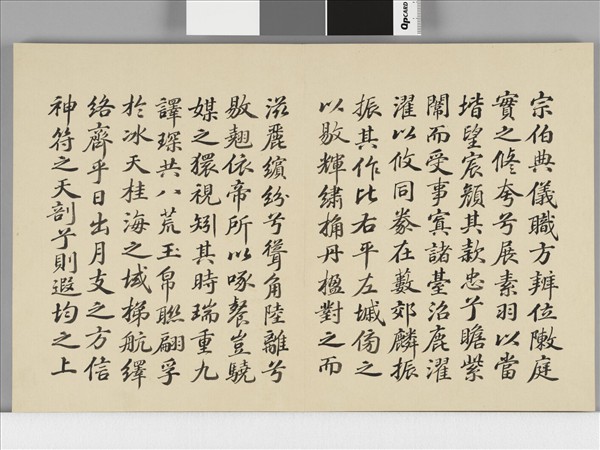 宗伯典儀職方辨位陳庭
實之修夸兮展素羽以當
堦望宸顏其款忠兮瞻紫
闈而受事寘諸臺沼鹿濯
濯以攸同豢在藪郊麟振
振其作比右平左墄傍之
以敭輝繡桷丹楹對之而
滋麗繽紛兮聳角陸離兮
敭翹依帝所以啄餐豈驍
媒之猥視矧其時瑞重九
譯琛共八荒玉帛聯翩孚
於冰天桂海之域梯航繹
絡齊乎日出月支之方信
神符之天剖兮則遐均之上
QPCARD